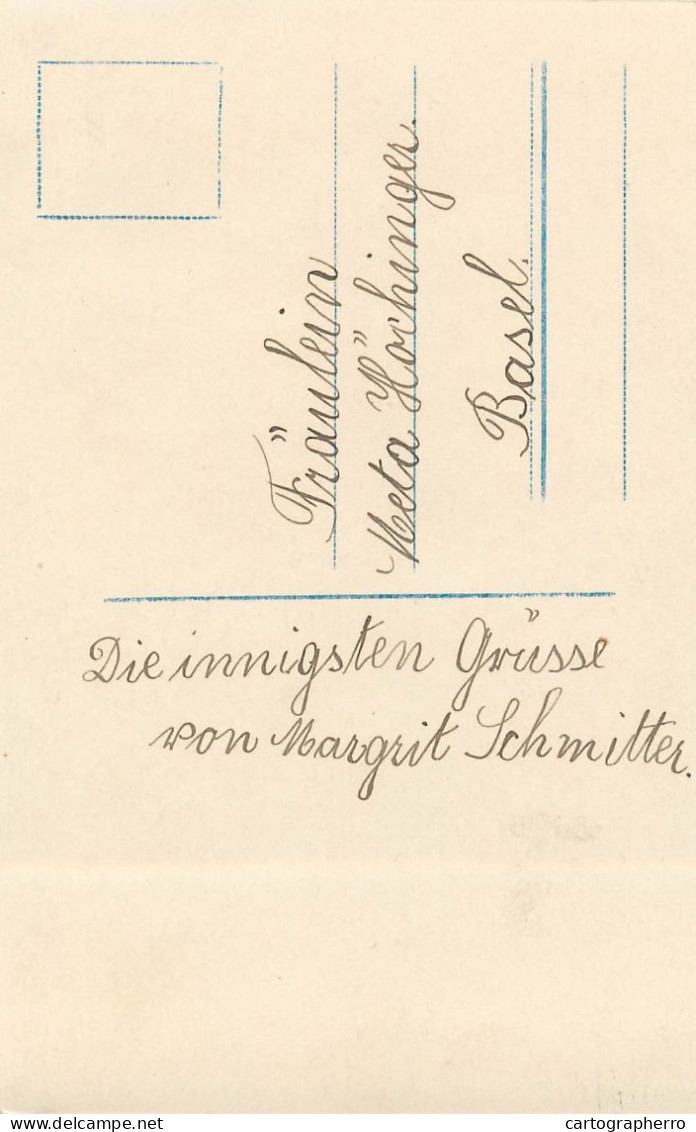 Fräulein
Meta Höchinger.
Basel.
Die innigsten Grüsse
von Margrit Schmitter.
delcampe.net
cartographerro